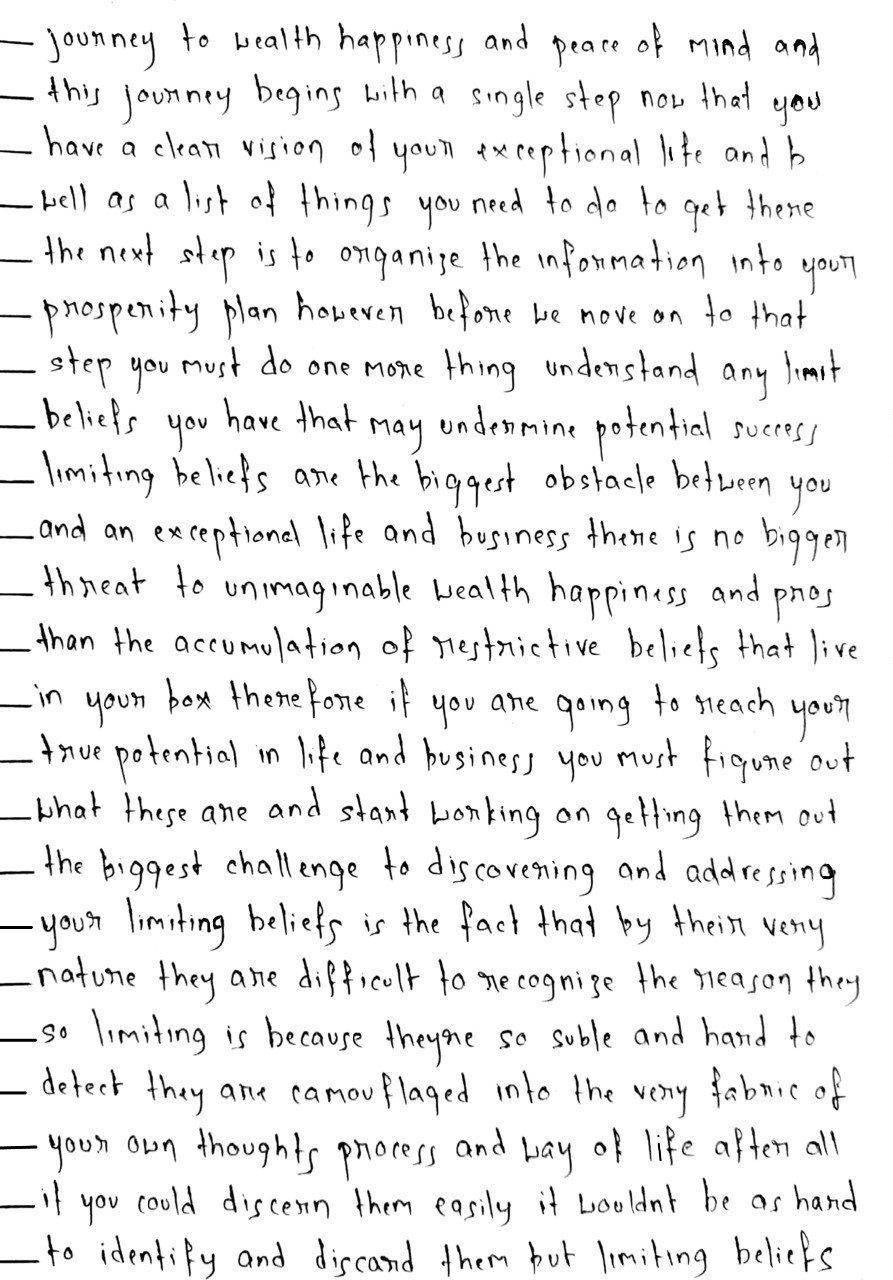 — journey to wealth happiness and peace of mind and
— this journey begins with a single step now that you
— have a clear vision of your exceptional life and b
— well as a list of things you need to do to get there
— the next step is to organize the information into your
— prosperity plan however before we move on to that
— step you must do one more thing understand any limit
— beliefs you have that may undermine potential success
— limiting beliefs are the biggest obstacle between you
— and an exceptional life and business there is no bigger
— threat to unimaginable wealth happiness and pros
— than the accumulation of restrictive beliefs that live
— in your box therefore if you are going to reach your
— true potential in life and business you must figure out
— what these are and start working on getting them out
— the biggest challenge to discovering and addressing
— your limiting beliefs is the fact that by their very
— nature they are difficult to recognize the reason they
— so limiting is because theyre so suble and hard to
— detect they are camouflaged into the very fabric of
— your own thoughts process and way of life after all
— if you could discern them easily it wouldnt be as hard
— to identify and discard them but limiting beliefs